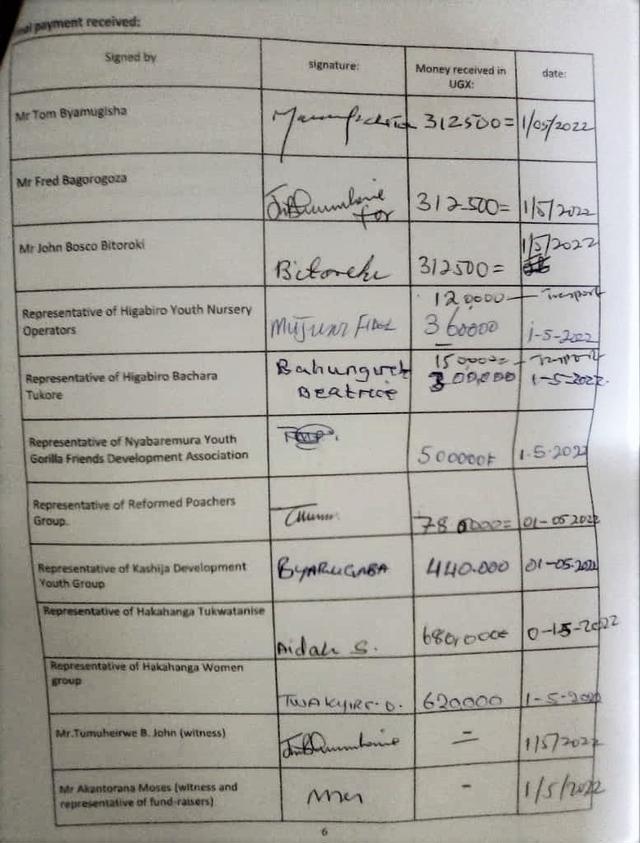 payment received:
Signed by
signature:
Money received in
UGX:
date:
Mr Tom Byamugisha
312500=
1/05/2022
Mr Fred Bagorogoza
for
312500=
1/5/2022
Mr John Bosco Bitoroki
Bitoreki
312500=
1/5/2022
Representative of Higabiro Youth Nursery
Operators
120,000 — Transport
360000
1-5-2022
Representative of Higabiro Bachara
Tukore
Beatrice
150,000= — Transport
300,000
1-5-2022
Representative of Nyabaremura Youth
Gorilla Friends Development Association
500000
1.5.2022
Representative of Reformed Poachers
Group.
780000=
01-05 2022
Representative of Kashija Development
Youth Group
BYARUGABA
440.000
01-05-2022
Representative of Hakahanga Tukwatanise
Aidah S.
680,000
0-15-2022
Representative of Hakahanga Women
group
620000
1-5-2022
Mr.Tumuheirwe B. John (witness)
=
1/5/2022
Mr Akantorana Moses (witness and
representative of fund-raisers)
-
1/5/2022
6